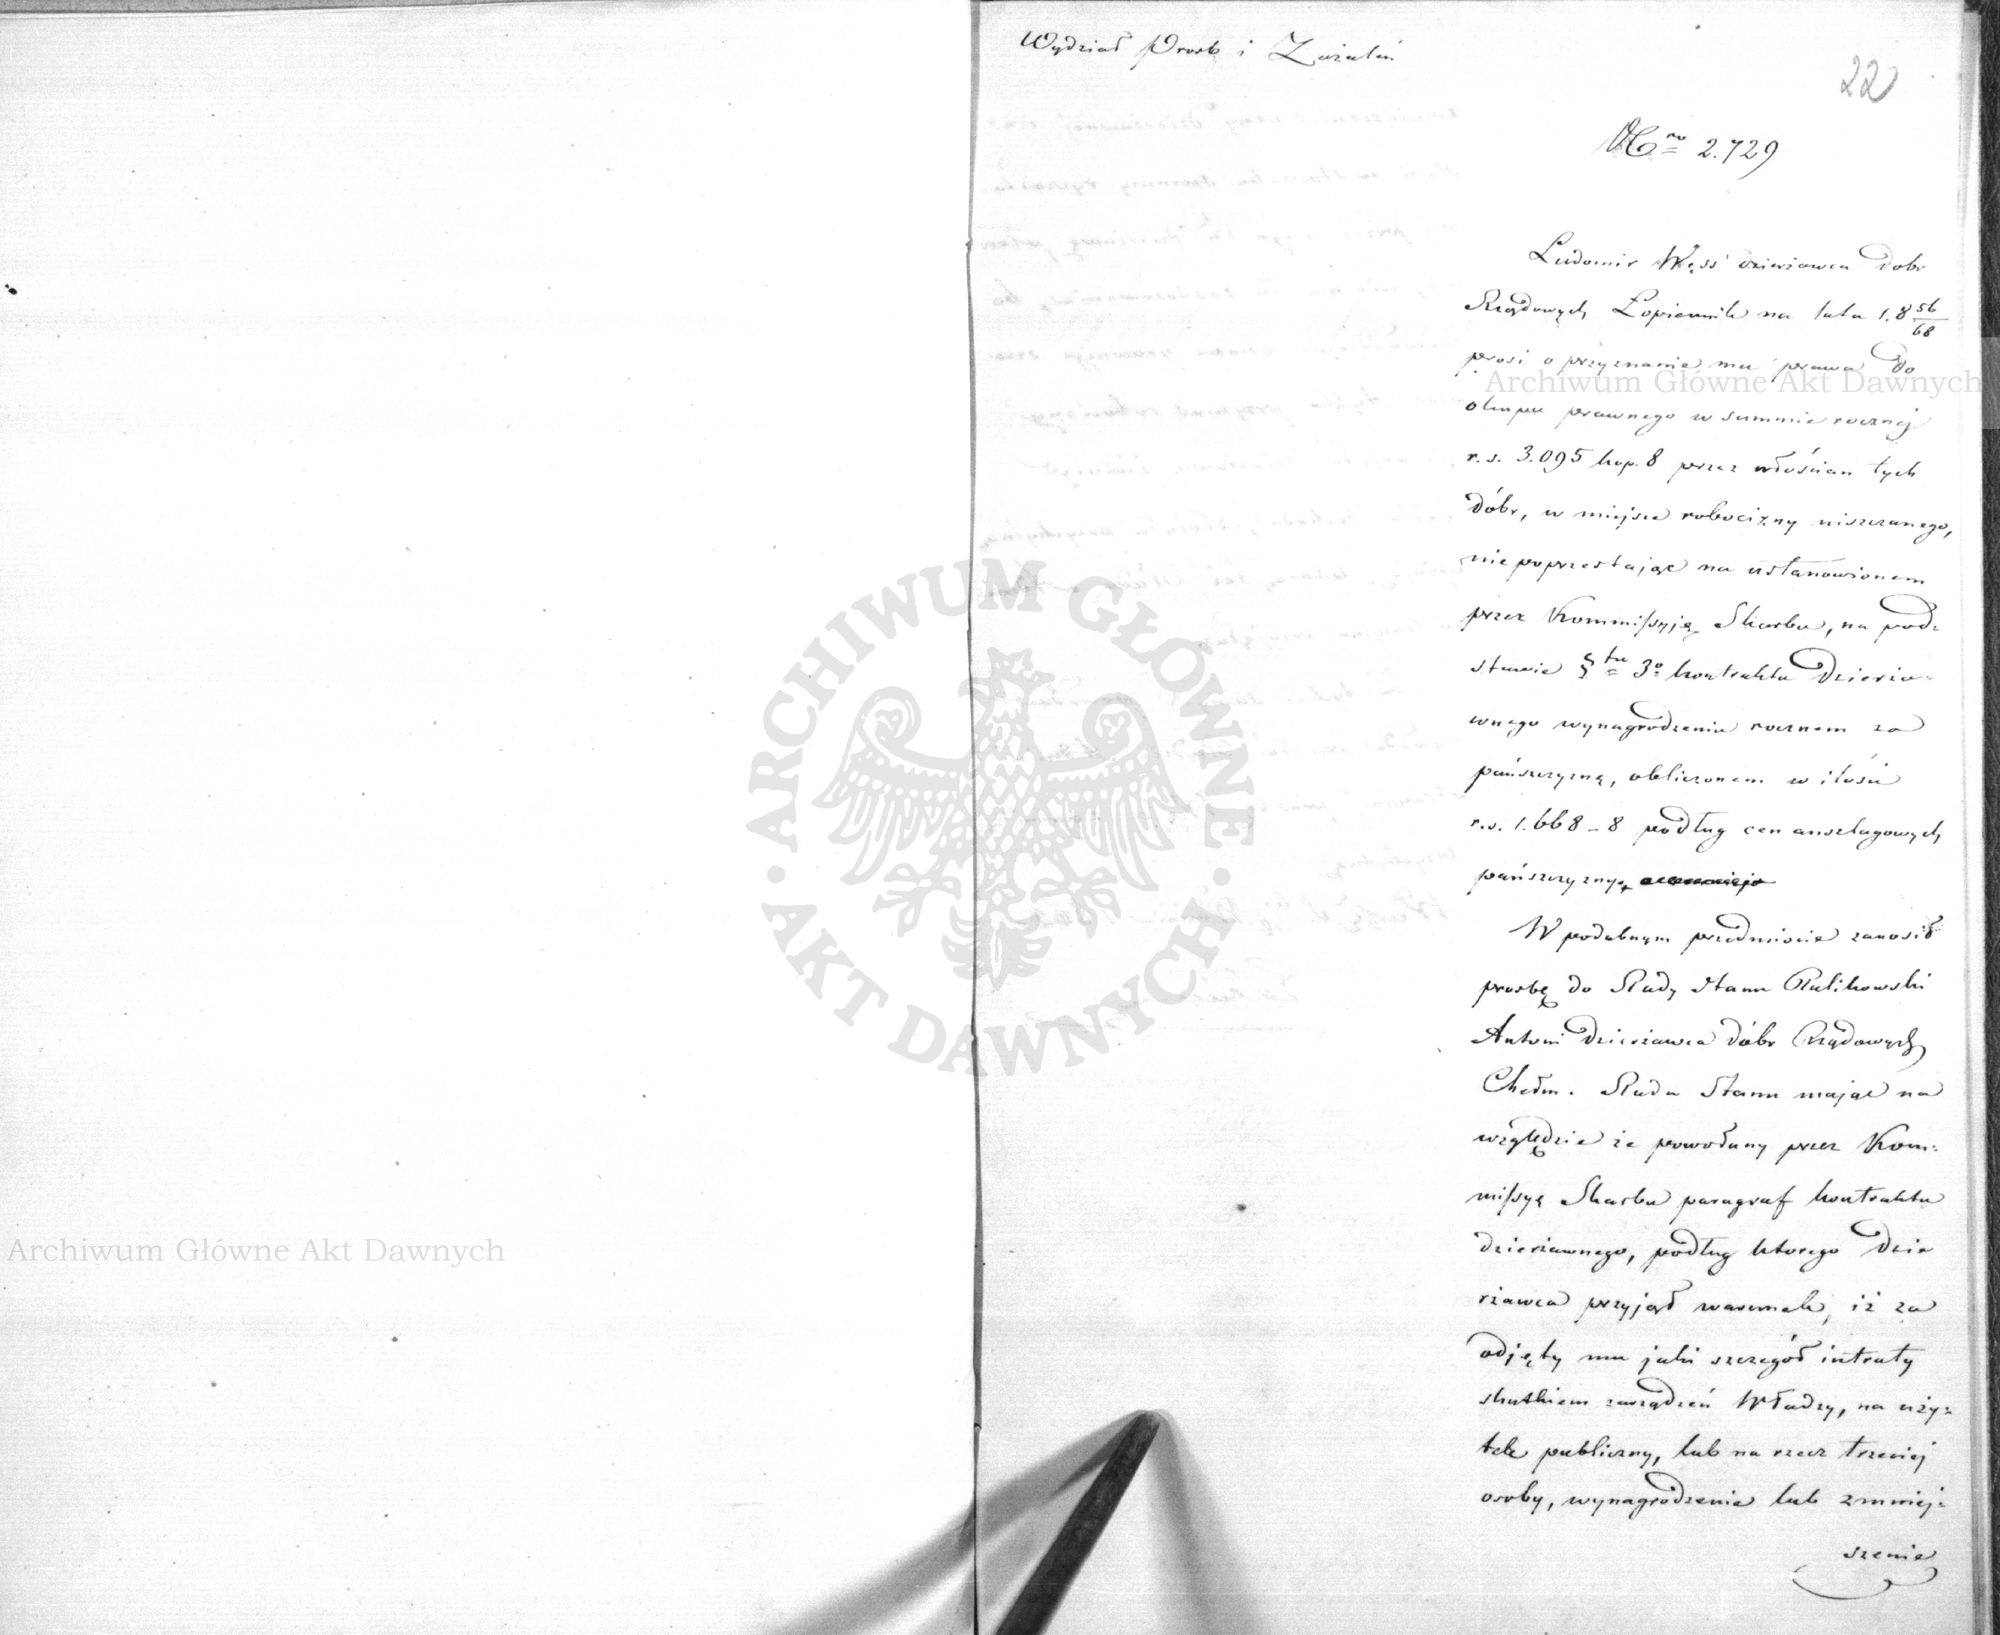 Wydział Prosb i Zażaleń
22
Nro 2.729
Ludomir Węss dzierżawca dobr
Rządowych Łopiennik na lata 1.8 56/68
prosi o przyznanie mu prawa do
okupu prawnego w summie rocznej
r.s. 3.095 kop. 8 przez włóścian tych
dóbr, w miejsce robocizny uiszczanego,
nie poprzestając na ustanowionem
przez Kommissyję Skarbu, na pod=
stawie §tu 3o kontraktu dzierża=
wnego wynagrodzeniu rocznem za
pańszczyznę, obliczonem w ilości
r.s. 1.668 - 8 podług cen anszlagowych
pańszczyzny,
W podobnym przedmiocie zanosił
prosbę do Rady Stanu Rulikowski
Antoni dzierżawca dóbr Rządowych
Chełm. Rada Stanu mając na
względzie że powołany przez Kom=
missyę Skarbu paragraf kontraktu
dzierżawnego, podług ktorego dzie
rżawca przyjął warunek, iż za
odjęty mu jaki szczegół intraty
skutkiem zarządzeń Władzy, na uży=
tek publiczny, lub na rzecz trzeciej
osoby, wynagrodzenie lub zmniej=
szenie
Archiwum Główne Akt Dawnych
Archiwum Główne Akt Dawnych
ARCHIWUM GŁÓWNE · AKT DAWNYCH ·